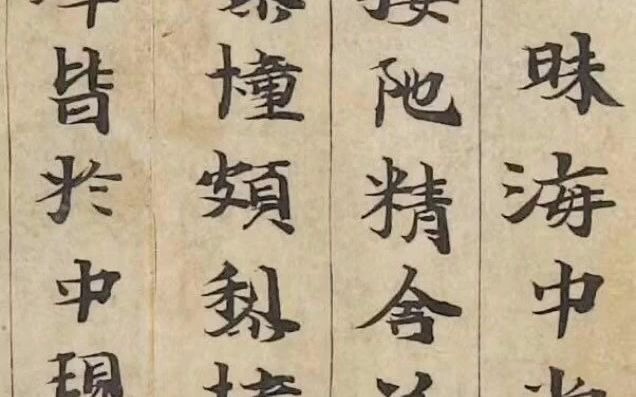 昧海中
陁精舍
幢頗梨
皆於中現